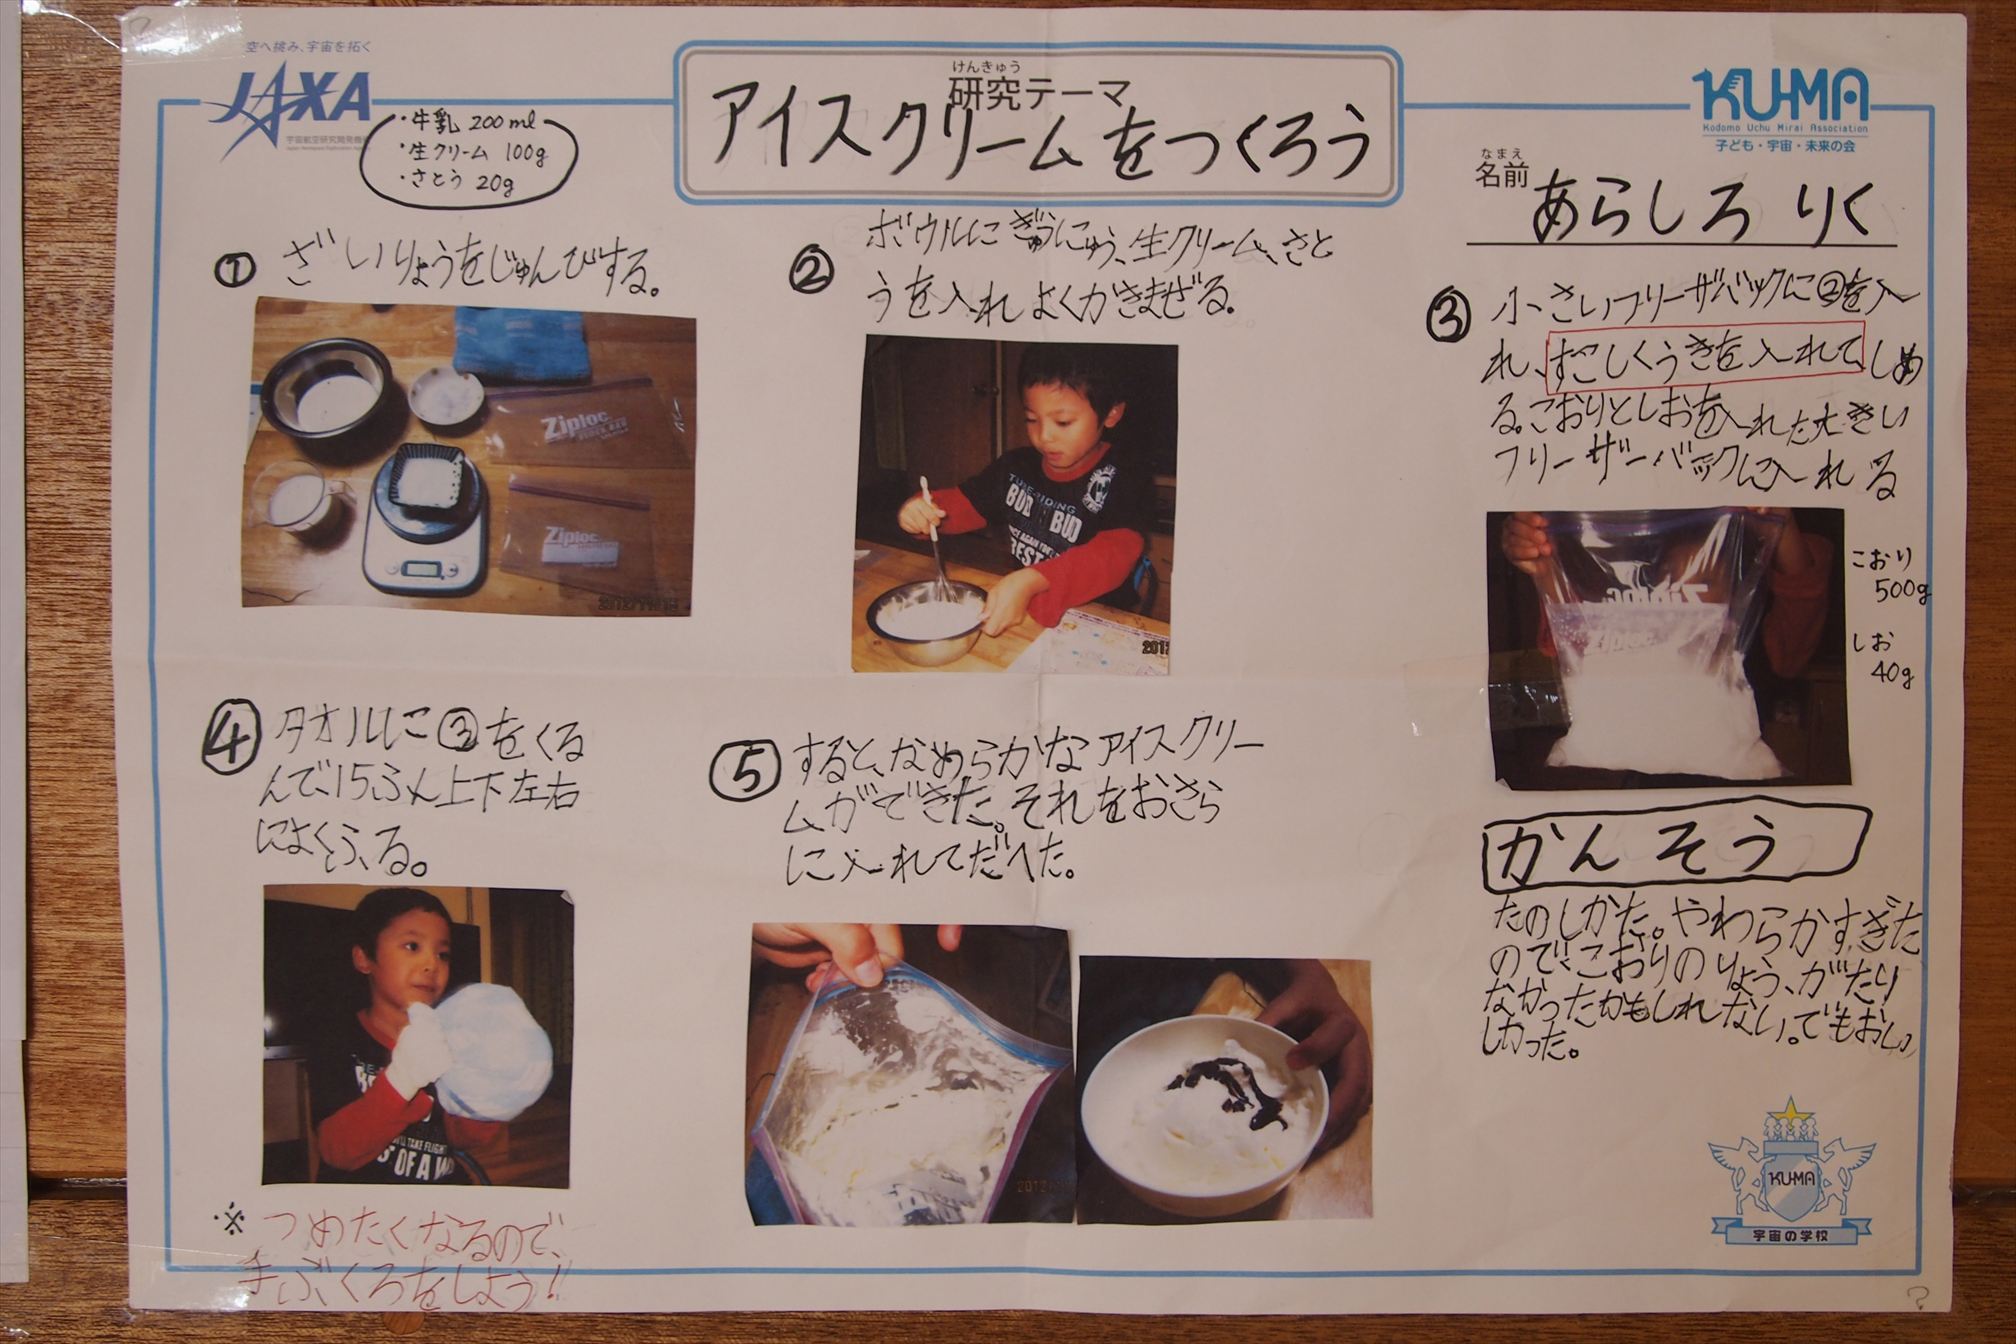 空へ挑み、宇宙を拓く
JAXA
宇宙航空研究開発機
けんきゅう
研究テーマ
アイスクリームをつくろう
KU-MA
Kodomo Uchu Mirai Association
子ども・宇宙・未来の会
なまえ
名前
あらしろ りく
・牛乳 200ml
・生クリーム 100g
・さとう 20g
① ざいりょうをじゅんびする。
Ziploc
Ziploc
② ボウルにぎゅうにゅう、生クリーム、さと
うを入れよくかきまぜる。
BUD N BUD
BEST
2012
③ 小さいフリーザバックに②を入
れ、すこしくうきを入れて、しめ
る。こおりとしおを入れた大きい
フリーザーバックに入れる
Ziploc
Ziploc
こおり
500g
しお
40g
④ タオルに③をくる
んで、15ふん上下左右
によくふる。
TAKE FLIGHT
OF A W
※ つめたくなるので、
手ぶくろをしよう!!
⑤ すると、なめらかなアイスクリー
ムができた。それをおさら
に入れてだべた。
2012
かんそう
たのしかた。やわらかすぎた
ので、こおりのりょう、がたり
なかったかもしれない。でもおい
しかった。
KU-MA
宇宙の学校